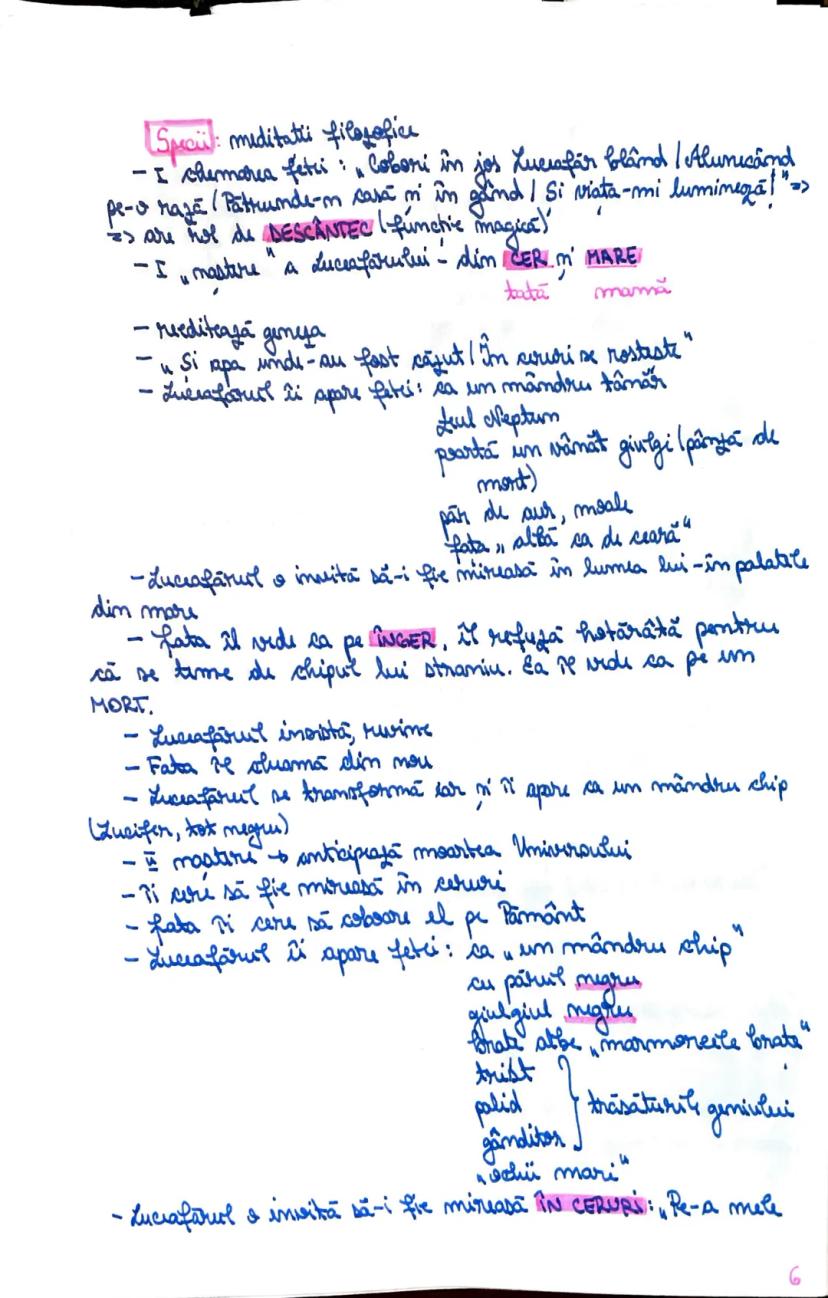 Specii: meditatii filozofice
- I chemarea fetei: „Cobori în jos Luceafăr blând / Alunecând
pe-o rază / Pătrunde-n casă și în gând / Si viața-mi luminează!" =>
=> are rol de DESCÂNTEC (funcție magică)
- I „naștere" a Luceafărului - din CER și MARE
tată mamă
- reeditează geneza
- „Și apa unde-au fost căzut / În cercuri se rostește"
- Luceafărul îi apare fetei: ca un mândru tânăr
zeul Neptun
poartă un vânăt giulgi (pânză de
mort)
păr de aur, moale
fața „albă ca de ceară"
- Luceafărul o invită să-i fie mireasă în lumea lui - în palatele
din mare
- Fata îl vede ca pe ÎNGER, îl refuză hotărâtă pentru
că se teme de chipul lui straniu. Ea îl vede ca pe un
MORT.
- Luceafărul insistă, revine
- Fata îl cheamă din nou
- Luceafărul se transformă iar și îi apare ca un mândru chip
(Lucifer, tot negru)
- II nașteri → anticipează moartea Universului
- îi cere să fie mireasă în ceruri
- Fata îi cere să coboare el pe Pământ
- Luceafărul îi apare fetei: ca „un mândru chip"
cu părul negru
giulgiul negru
brațe albe „marmoreele brațe"
trist
palid } trăsăturile geniului
gânditor
„ochii mari"
- Luceafărul o invită să-i fie mireasă ÎN CERURI: „Pe-a mele
6